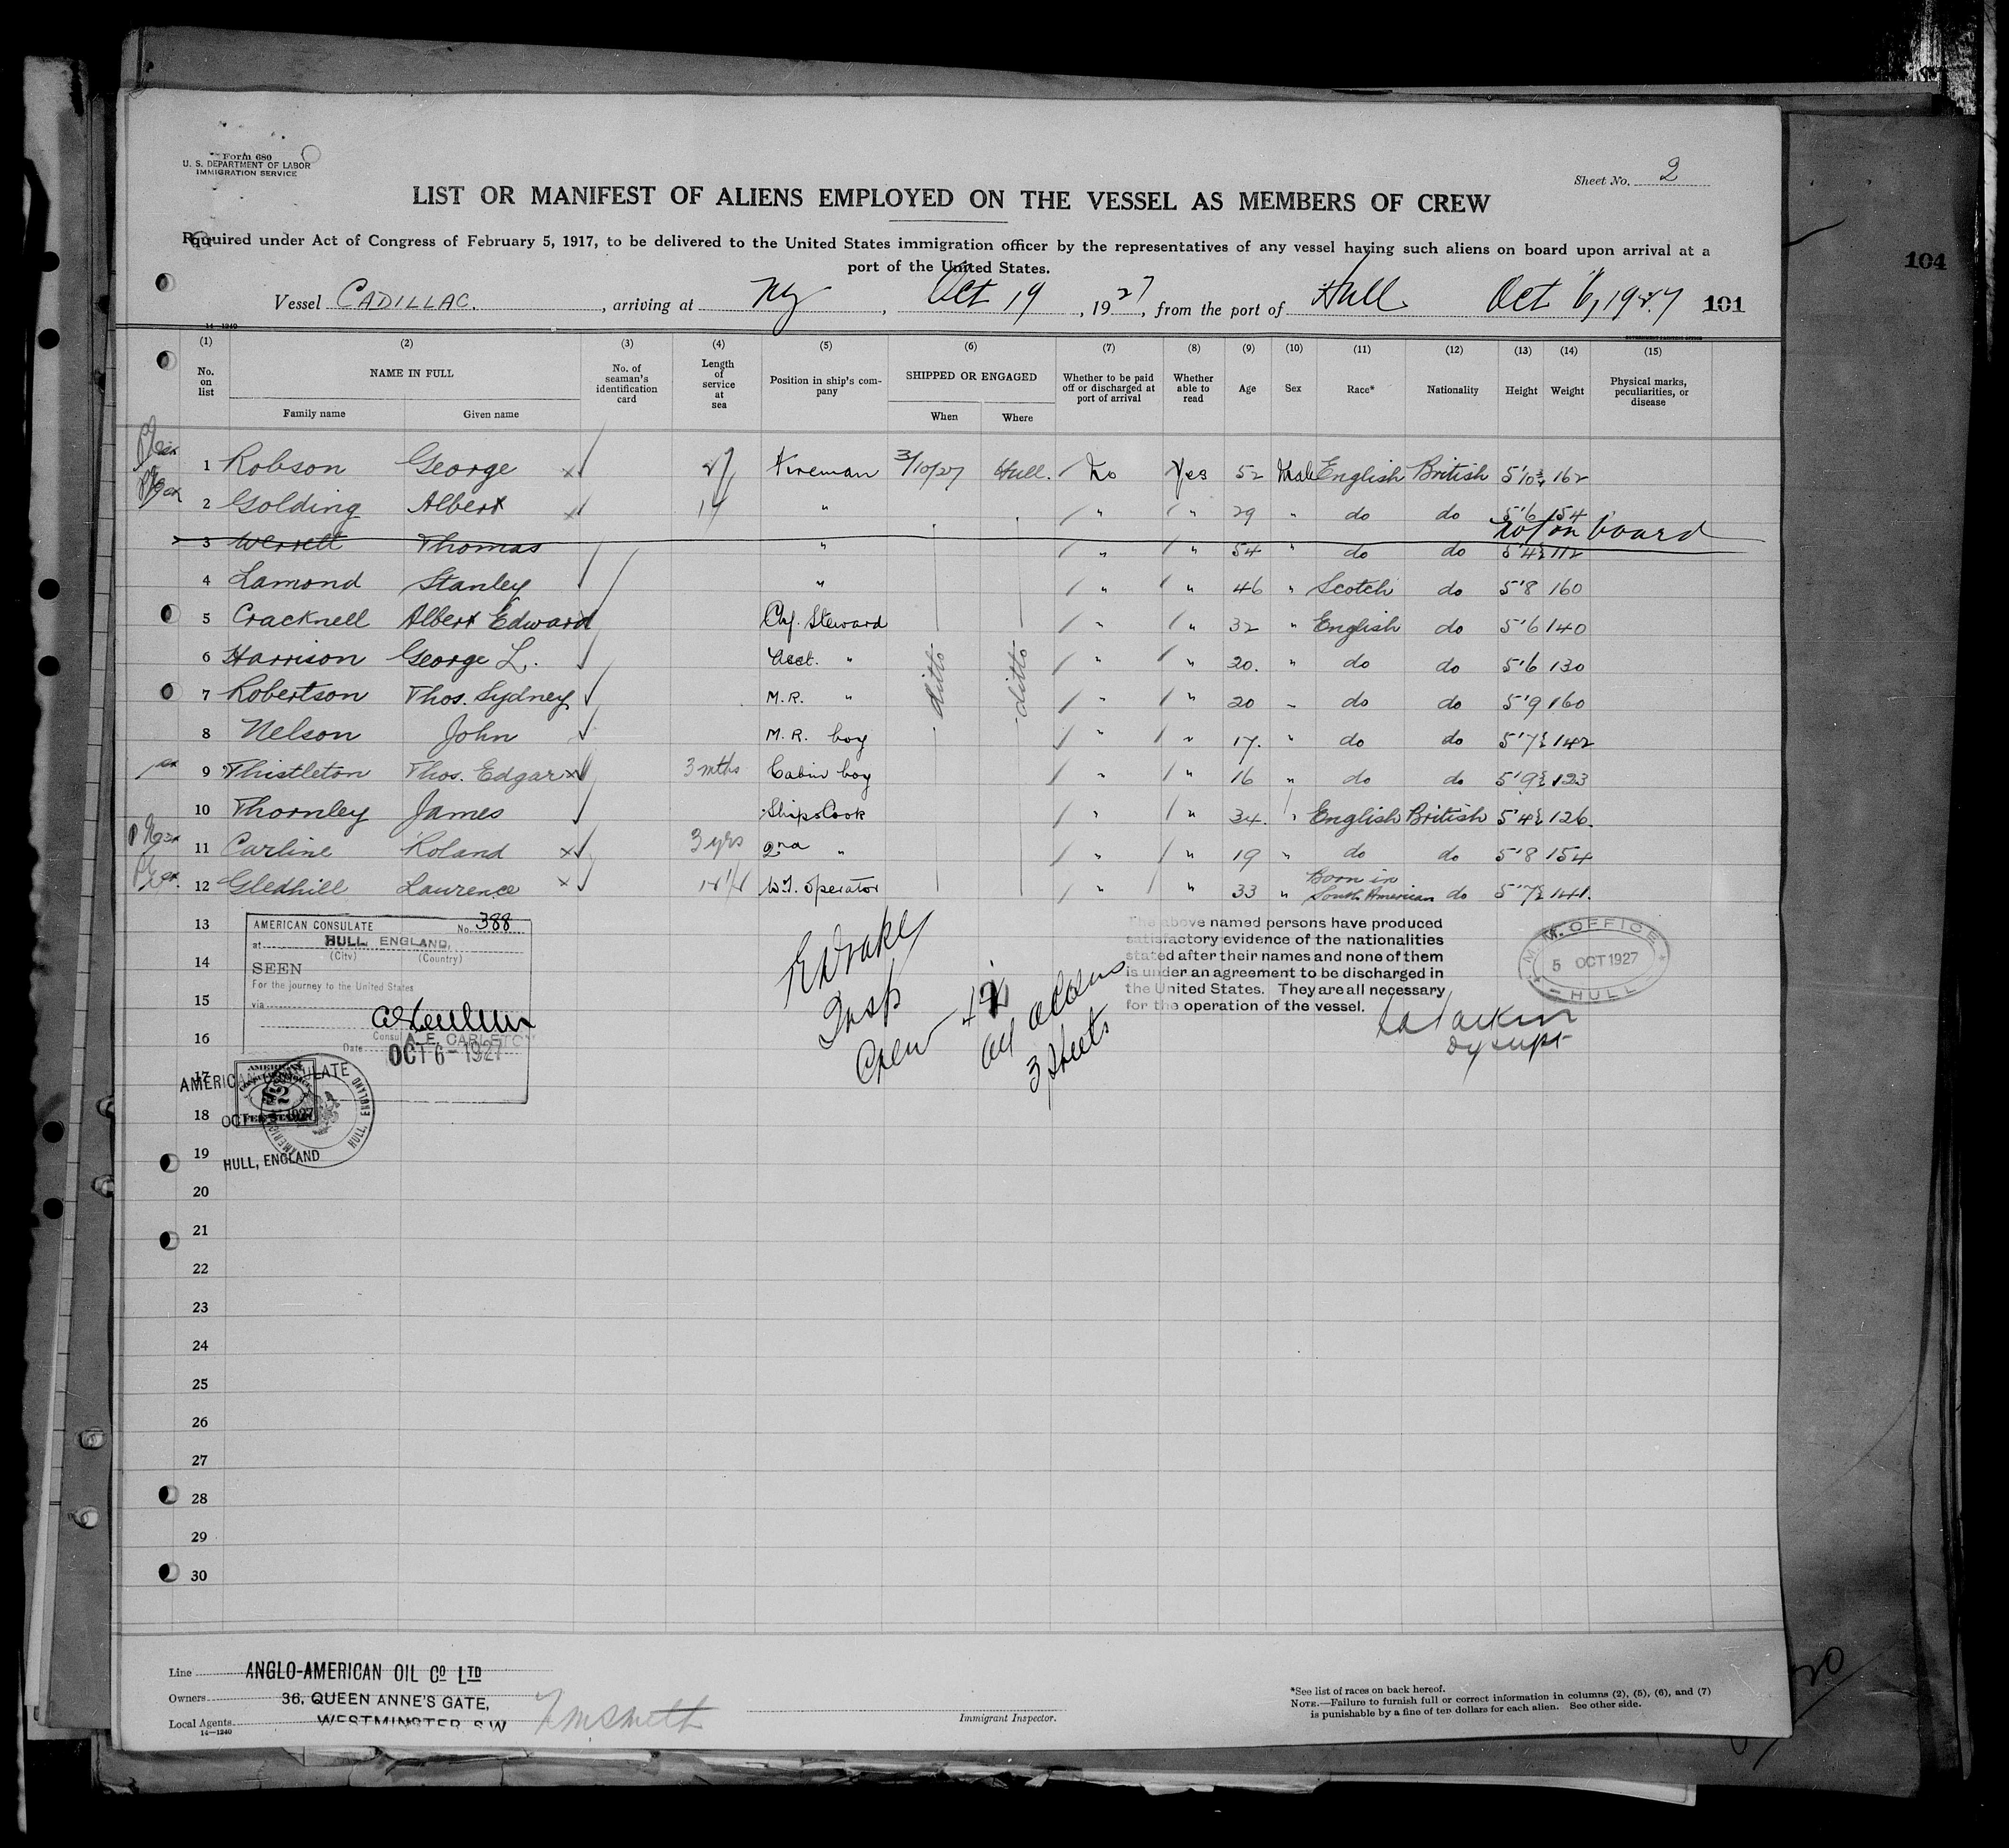 Form 680
U. S. DEPARTMENT OF LABOR
IMMIGRATION SERVICE
Sheet No. 2
LIST OR MANIFEST OF ALIENS EMPLOYED ON THE VESSEL AS MEMBERS OF CREW
Required under Act of Congress of February 5, 1917, to be delivered to the United States immigration officer by the representatives of any vessel having such aliens on board upon arrival at a
port of the United States.
Vessel CADILLAC. , arriving at Ny , Oct 19 , 1927, from the port of Hull. Oct 6, 1927 101
104
14—1240
(1) (2) (3) (4) (5) (6) (7) (8) (9) (10) (11) (12) (13) (14) (15)
No. on list NAME IN FULL Family name Given name No. of seaman's identification card Length of service at sea Position in ship's company SHIPPED OR ENGAGED When Where Whether to be paid off or discharged at port of arrival Whether able to read Age Sex Race* Nationality Height Weight Physical marks, peculiarities, or disease
1 Robson George 27 Fireman 3/10/27 Hull. No Yes 52 Male English British 5'10¾ 162
2 Golding Albert 14 " " " 29 " do do 5'6 154
not on board
3 Werrett Thomas " " " 54 " do do 5'4½ 112
4 Lamond Stanley " " " 46 " Scotch do 5'8 160
5 Cracknell Albert Edward Chf. Steward " " 32 " English do 5'6 140
6 Harrison George L. Asst. " ditto ditto " " 20. " do do 5'6 130
7 Robertson Thos. Sydney M.R. " " " 20 " do do 5'9 160
8 Nelson John M.R. boy " " 17. " do do 5'7½ 142
9 Thistleton Thos. Edgar 3 mths Cabin boy " " 16 " do do 5'9½ 123
10 Thornley James Ships Cook " " 34. " English British 5'4½ 126.
11 Carline Roland 3 yrs 2nd " " " 19 " do do 5'8 154
12 Gledhill Laurence W.T. Operator " " 33 " Born in South American do 5'7½ 141.
13
14
15
16
17
18
19
20
21
22
23
24
25
26
27
28
29
30
AMERICAN CONSULATE No. 388
at HULL, ENGLAND,
(City) (Country)
SEEN
For the journey to the United States
via
Consul A. E. CARLETON
Date OCT 6 - 1927
AMERICAN CONSULATE
HULL, ENGLAND
E Drake
Insp
Crew 42
all aliens
3 sheets
The above named persons have produced
satisfactory evidence of the nationalities
stated after their names and none of them
is under an agreement to be discharged in
the United States. They are all necessary
for the operation of the vessel.
M. M. OFFICE
5 OCT 1927
HULL
Dy Supt
Line ANGLO-AMERICAN OIL CO LTD
Owners 36, QUEEN ANNE'S GATE,
Local Agents WESTMINSTER, S.W
14—1240
Immigrant Inspector.
*See list of races on back hereof.
NOTE.—Failure to furnish full or correct information in columns (2), (5), (6), and (7)
is punishable by a fine of ten dollars for each alien. See other side.